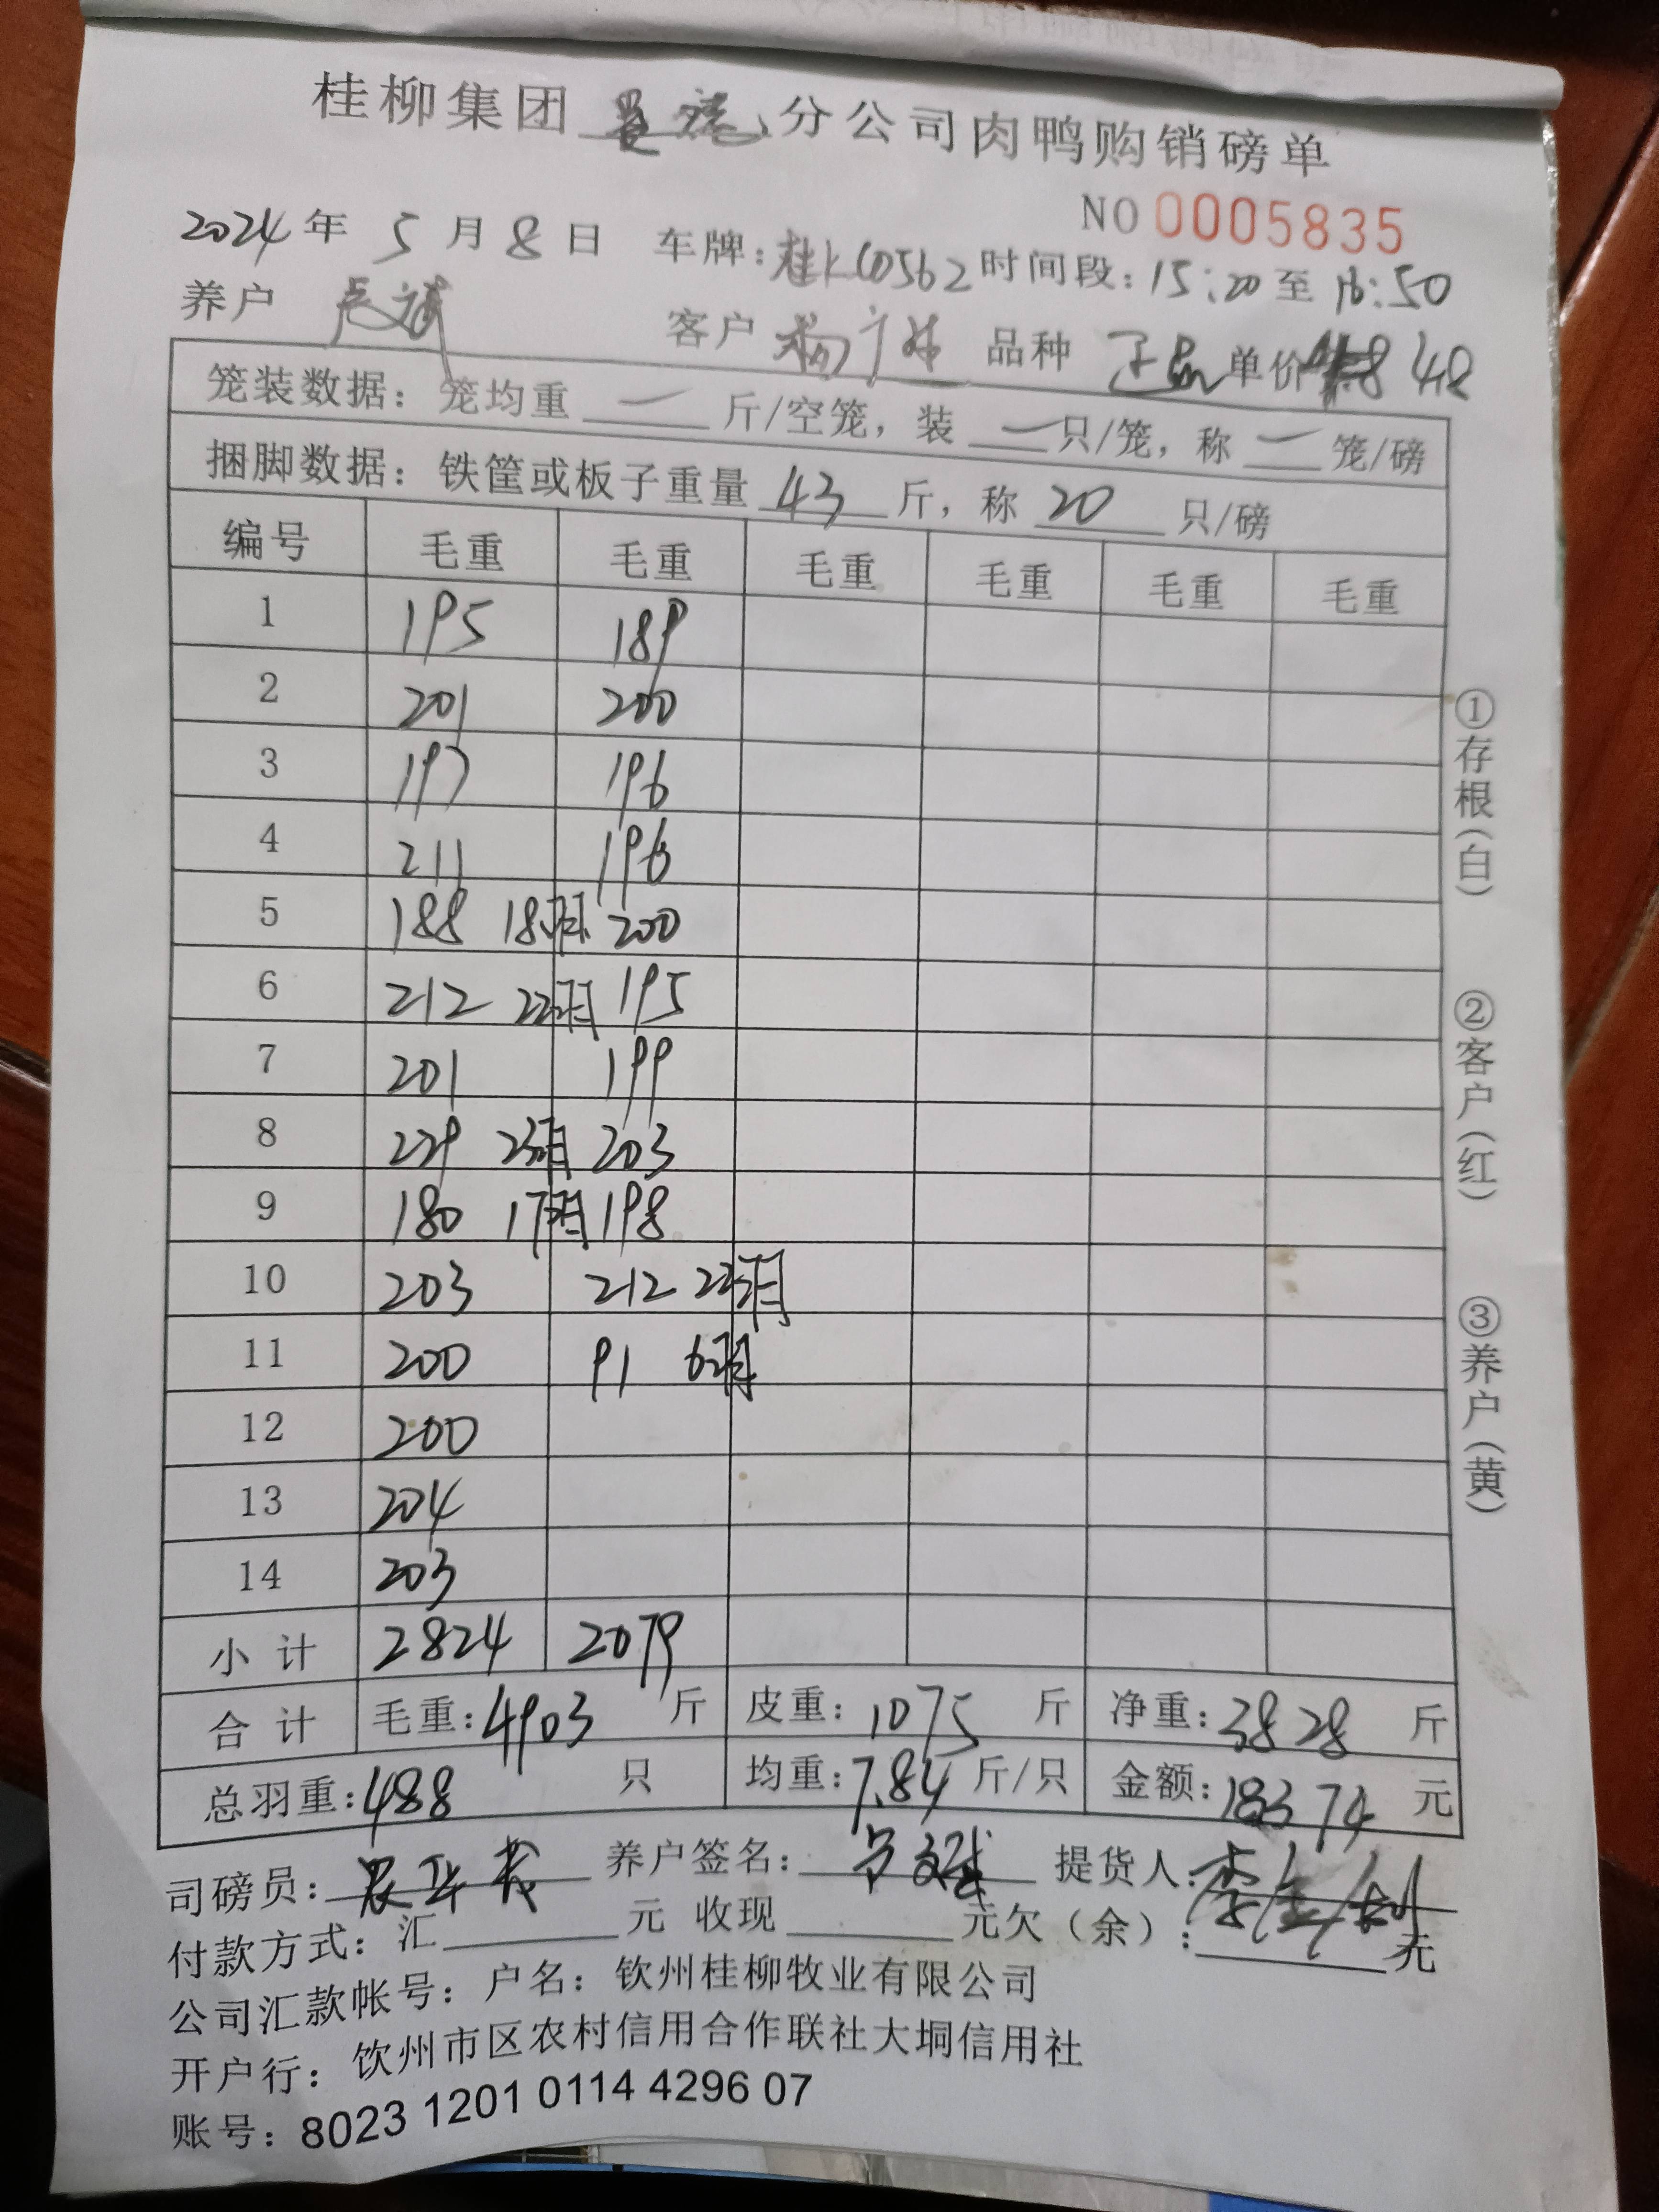 桂柳集团 分公司肉鸭购销磅单
NO 0005835
2024 年 5 月 8 日 车牌: 时间段: 15:20 至 16:50
养户 客户 品种 正品 单价 4.8
笼装数据: 笼均重 一 斤/空笼, 装 一 只/笼, 称 一 笼/磅
捆脚数据: 铁筐或板子重量 43 斤, 称 20 只/磅
编号 毛重 毛重 毛重 毛重 毛重 毛重
1 195 189
2 201 200
3 197 196
4 211 196
5 188 18只 200
6 212 22只 195
7 201 199
8 229 23只 203
9 180 17只 198
10 203 212 22只
11 200 91 6只
12 200
13 204
14 203
小计 2824 2079
合计 毛重: 4903 斤 皮重: 1075 斤 净重: 3828 斤
总羽重: 488 只 均重: 7.84 斤/只 金额: 18374 元
司磅员: 养户签名: 提货人:
付款方式: 汇 元 收现 元欠(余): 元
公司汇款帐号: 户名: 钦州桂柳牧业有限公司
开户行: 钦州市区农村信用合作联社大垌信用社
账号: 8023 1201 0114 4296 07
①存根(白) ②客户(红) ③养户(黄)